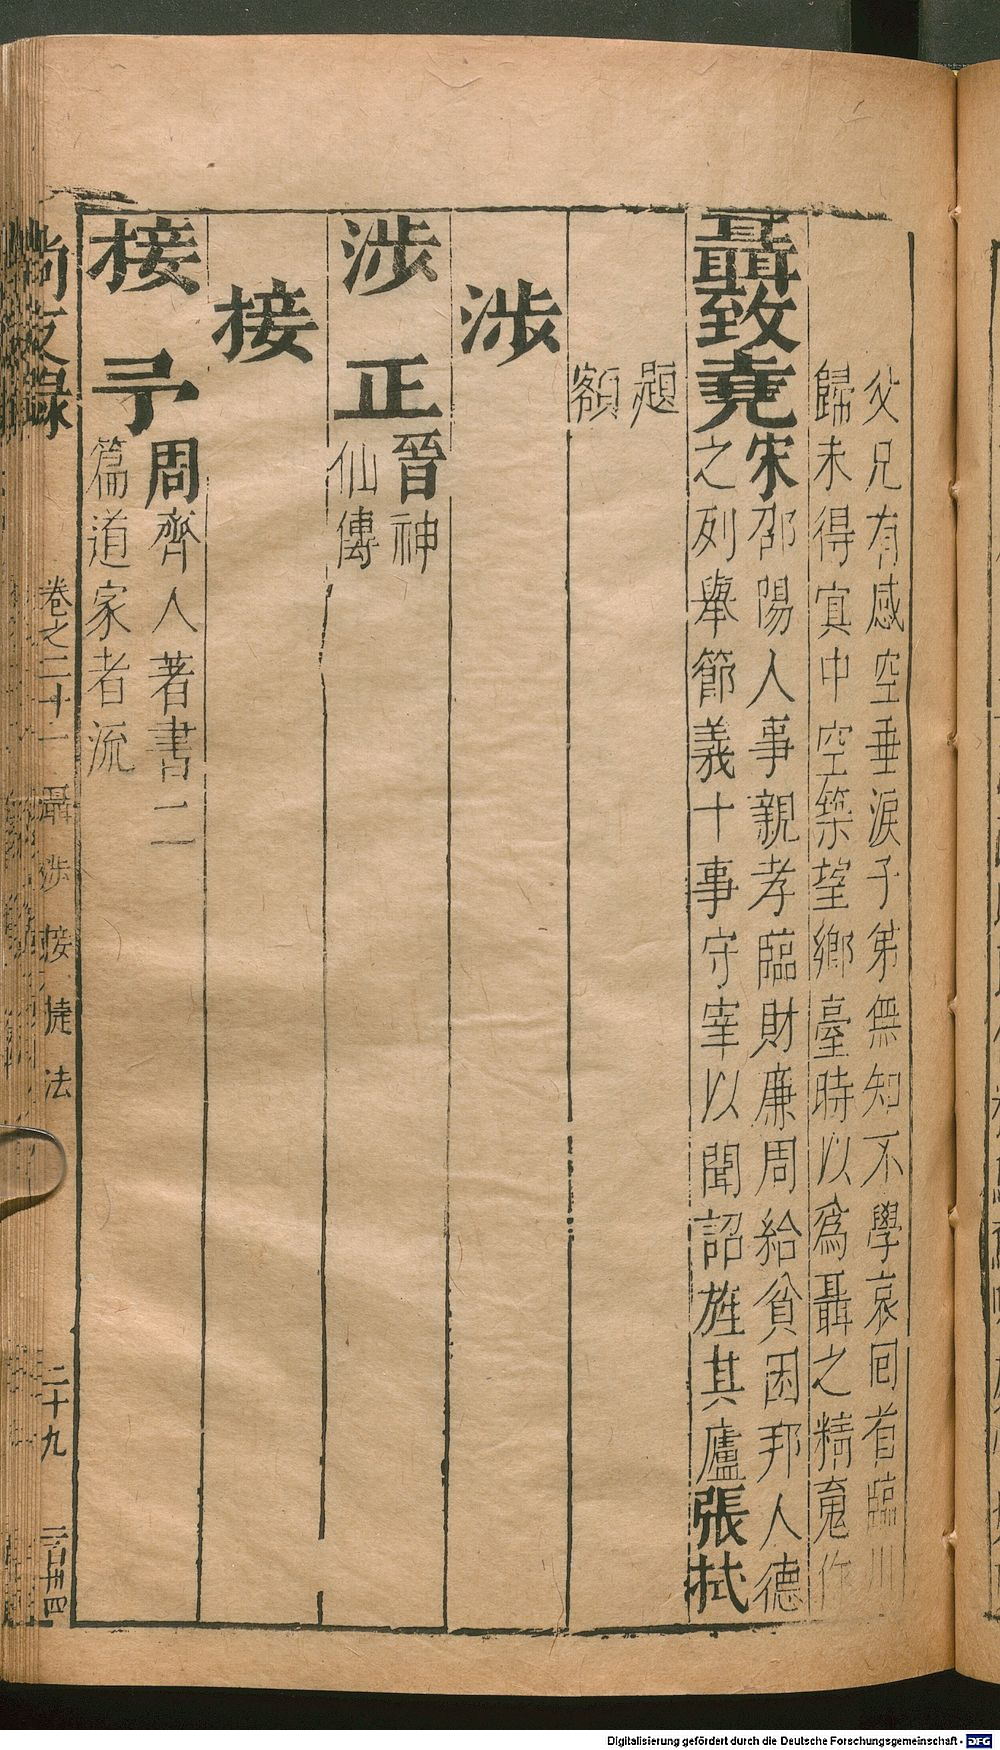 父兄有感空垂淚子弟無知不學哀囘首臨川
歸未得寘中空築望鄉臺時以爲聶之精䰟作
聶致堯宋邵陽人事親孝臨財廉周給貧困邦人德
之列舉節義十事守宰以聞詔旌其廬張栻
題
額
涉
涉正晉神
仙傳
接
接予周齊人著書二
篇道家者流
尚友錄 卷之二十一 聶涉接捷法 二十九
Digitalisierung gefördert durch die Deutsche Forschungsgemeinschaft - DFG